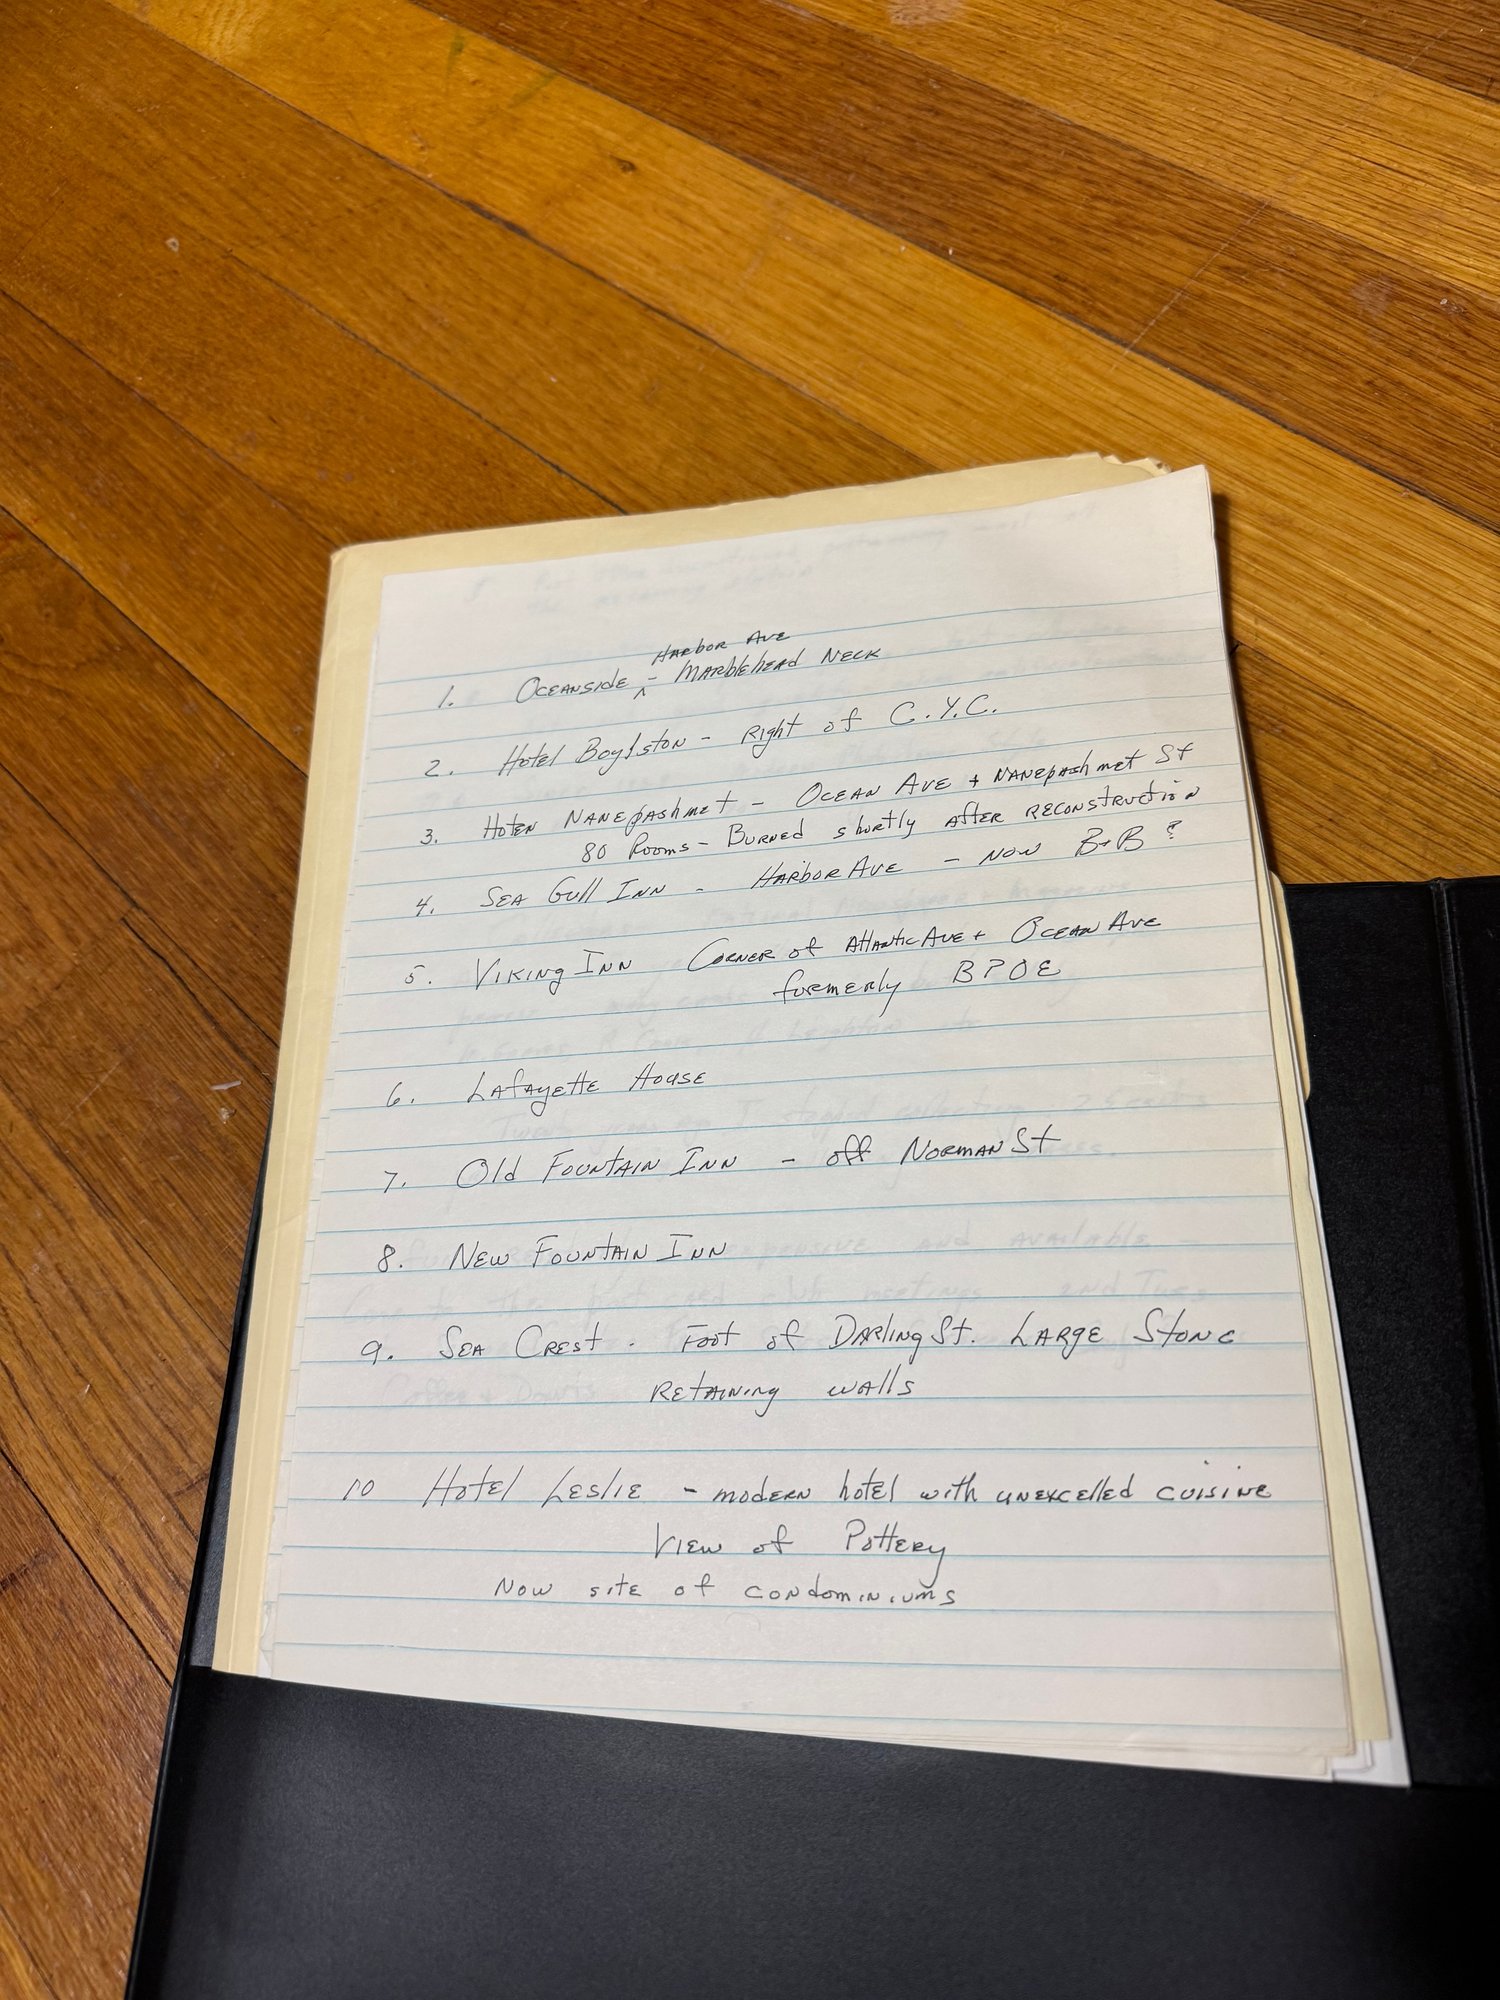 Harbor Ave
1. Oceanside ^ - Marblehead Neck
2. Hotel Boylston - Right of C.Y.C.
3. Hotel Nanepashmet - Ocean Ave + Nanepashmet St
80 Rooms - Burned shortly after reconstruction
4. Sea Gull Inn - Harbor Ave - Now B+B ?
5. Viking Inn Corner of Atlantic Ave + Ocean Ave
formerly BPOE
6. Lafayette House
7. Old Fountain Inn - off Norman St
8. New Fountain Inn
9. Sea Crest - Foot of Darling St. Large Stone
Retaining walls
10 Hotel Leslie - modern hotel with unexcelled cuisine
View of Pottery
Now site of condominiums